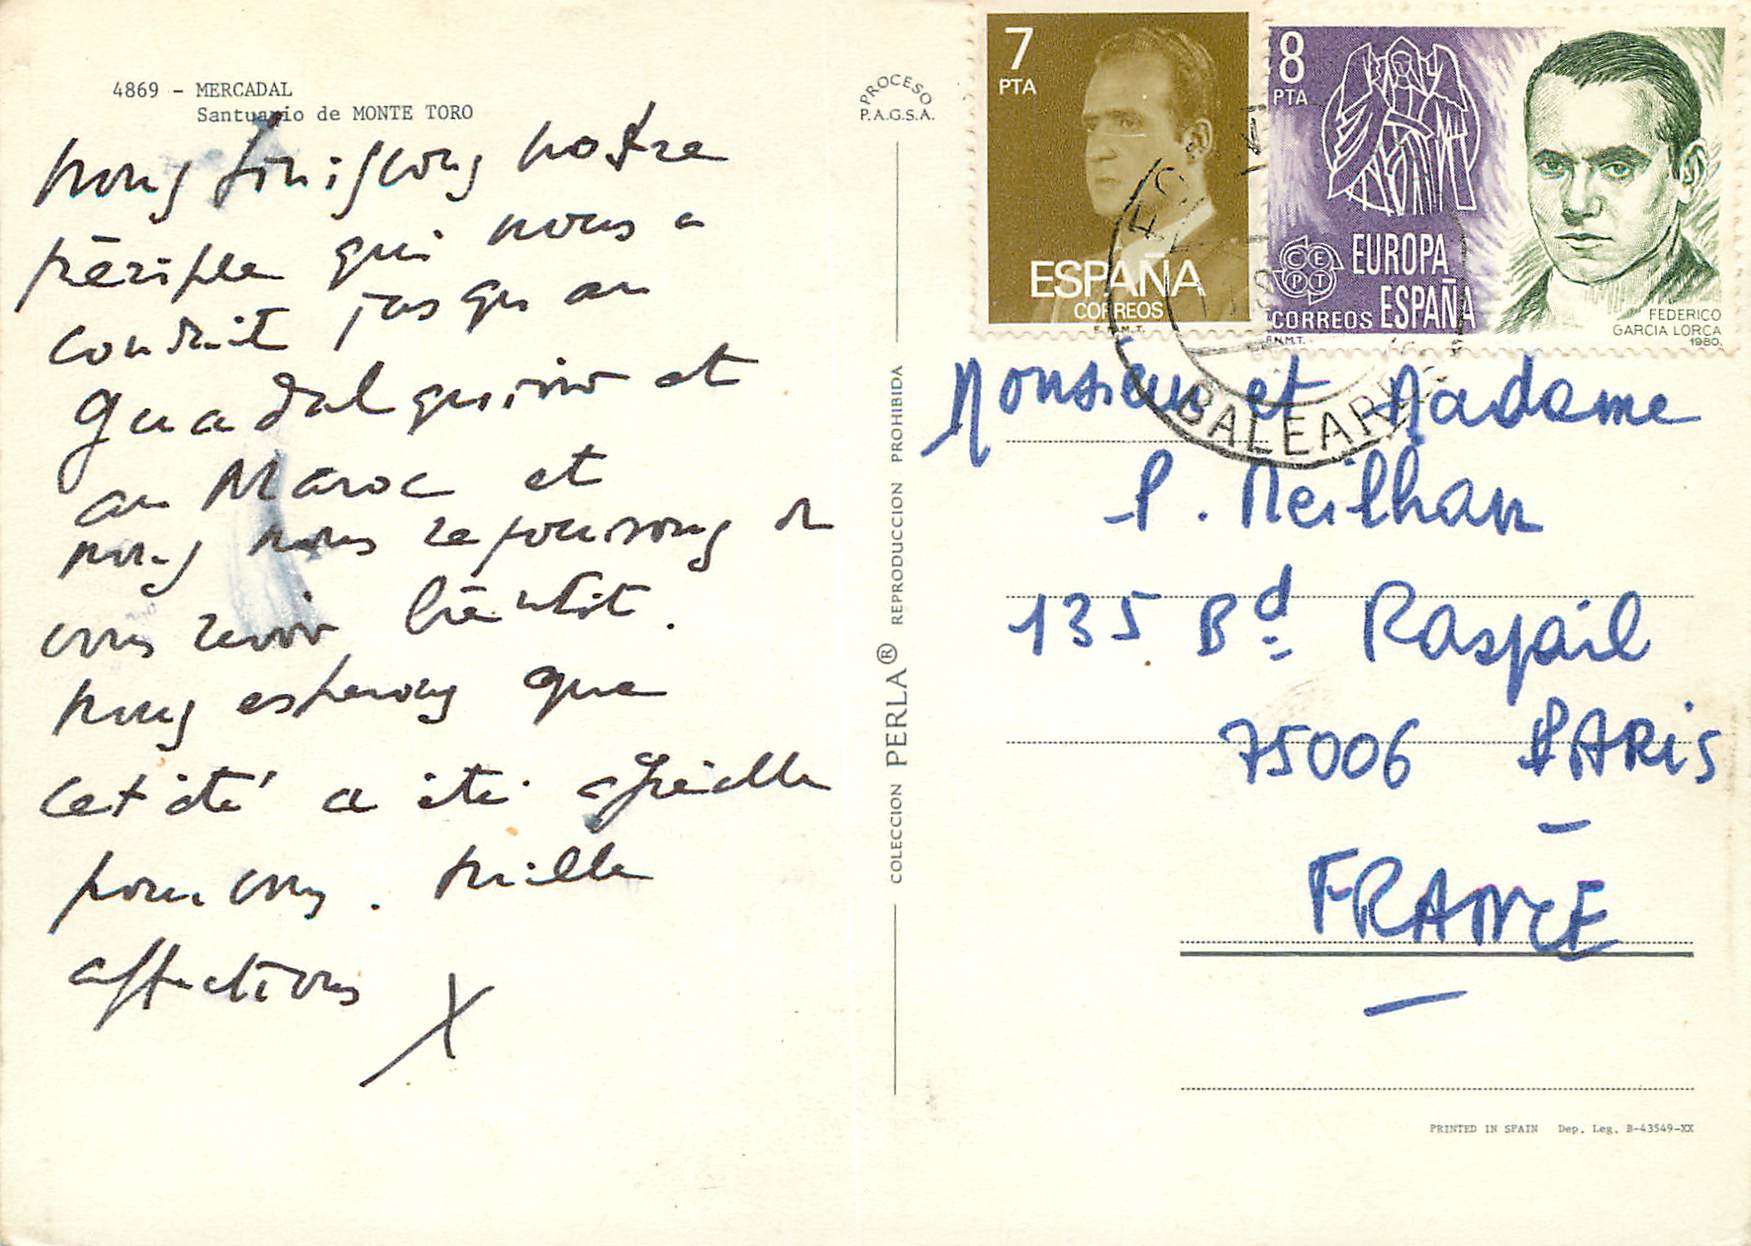 4869 - MERCADAL
Santuario de MONTE TORO
nous finissons notre
périple qui nous a
conduit jusqu'au
Guadalquivir et
au Maroc et
nous nous réjouissons de
vous revoir bientôt.
nous espérons que
cet été a été
pour vous. Mille
affections
X
PROCESO
P.A.G.S.A.
COLECCION PERLA® REPRODUCCION PROHIBIDA
7
PTA
ESPAÑA
CORREOS
F.N.M.T.
8
PTA
CEPT
EUROPA
CORREOS ESPAÑA
F.N.M.T.
FEDERICO
GARCIA LORCA
1980.
BALEARES
Monsieur et Madame
P. Meilhan
135 Bd Raspail
75006 PARIS
FRANCE
PRINTED IN SPAIN Dep. Leg. B-43549-XX